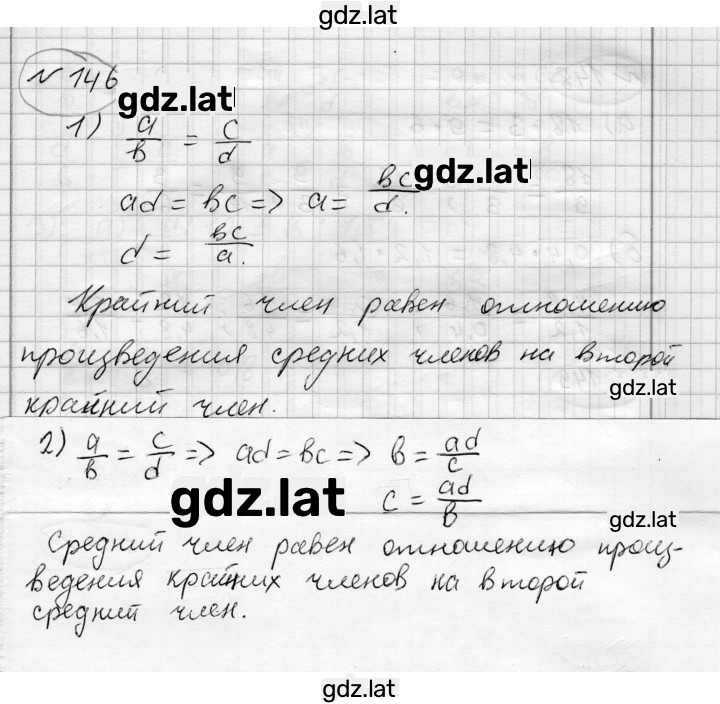 gdz.lat
№ 146
gdz.lat
1) a/в = c/d
gdz.lat
ad = вc => a = вc/d.
d = вc/a.
Крайний член равен отношению
произведения средних членов на второй
gdz.lat
крайний член.
2) a/в = c/d => ad = вc => в = ad/c
gdz.lat
c = ad/в
gdz.lat
Средний член равен отношению произ-
ведения крайних членов на второй
средний член.
gdz.lat